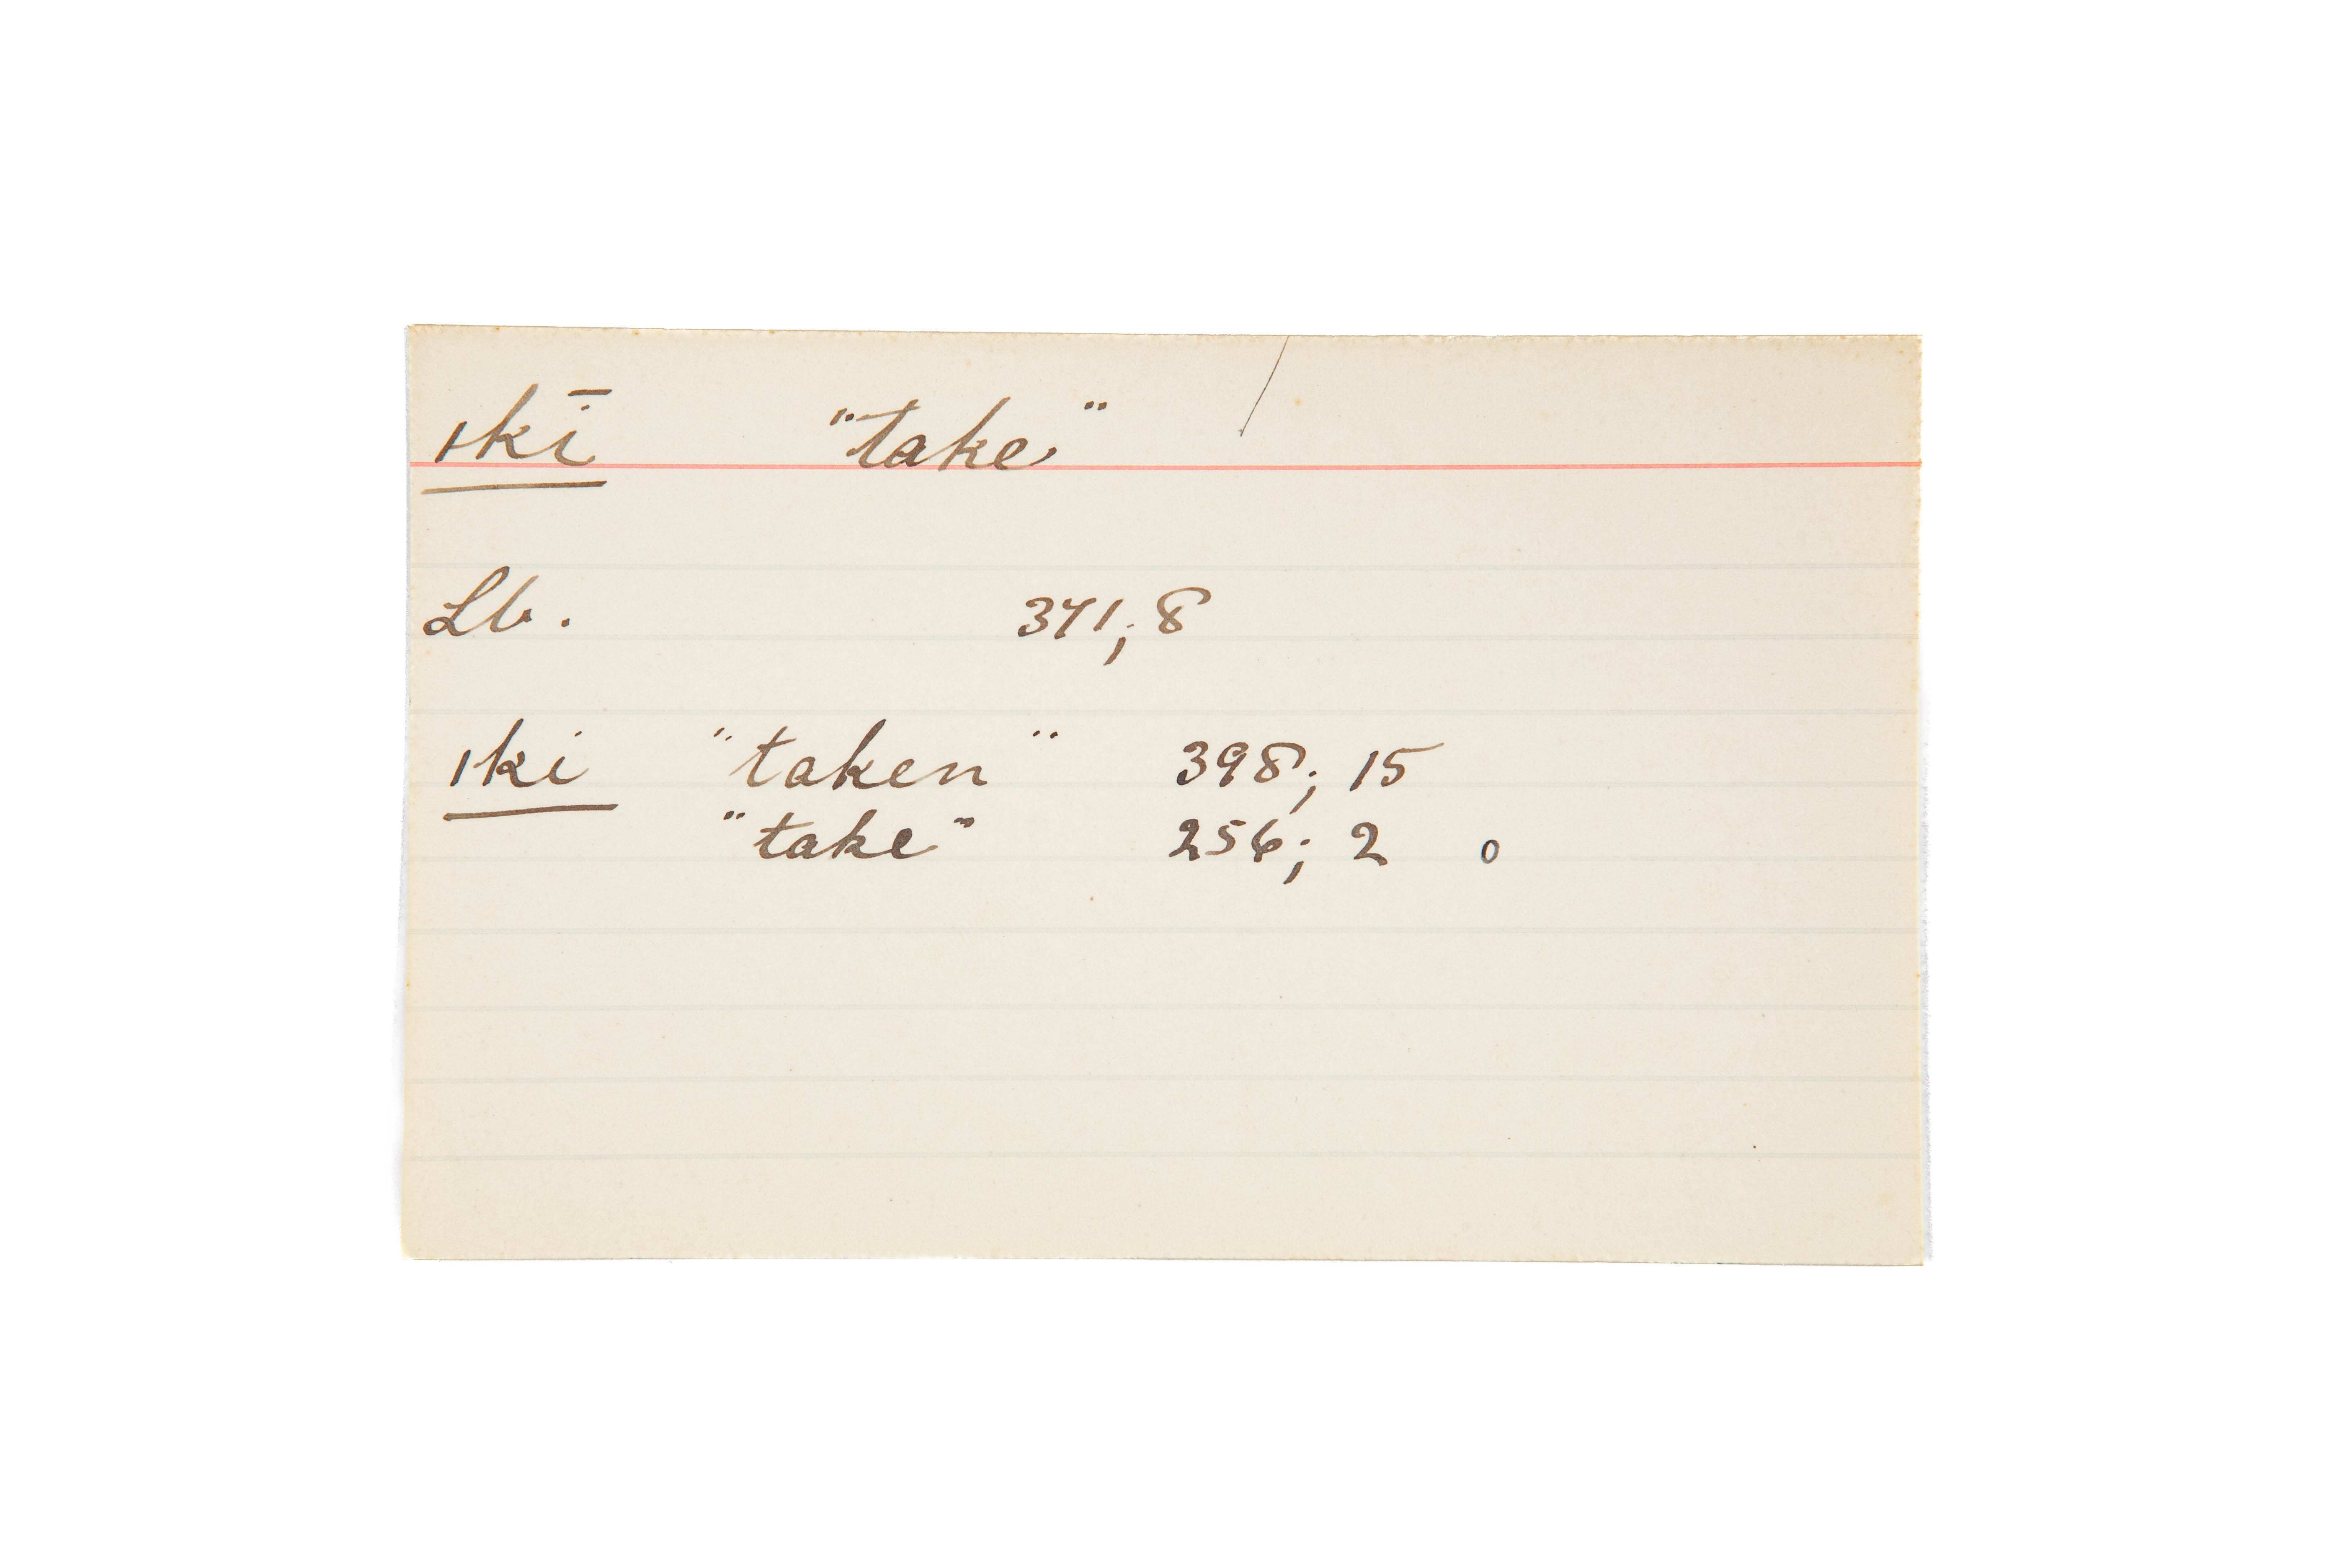 ıkī "take"
Lb. 371; 8
ıki "taken" 398; 15
"take" 256; 2 o